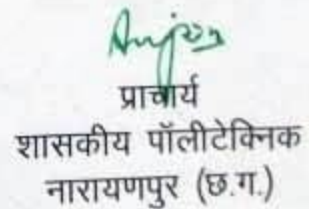 प्राचार्य
शासकीय पॉलीटेक्निक
नारायणपुर (छ.ग.)